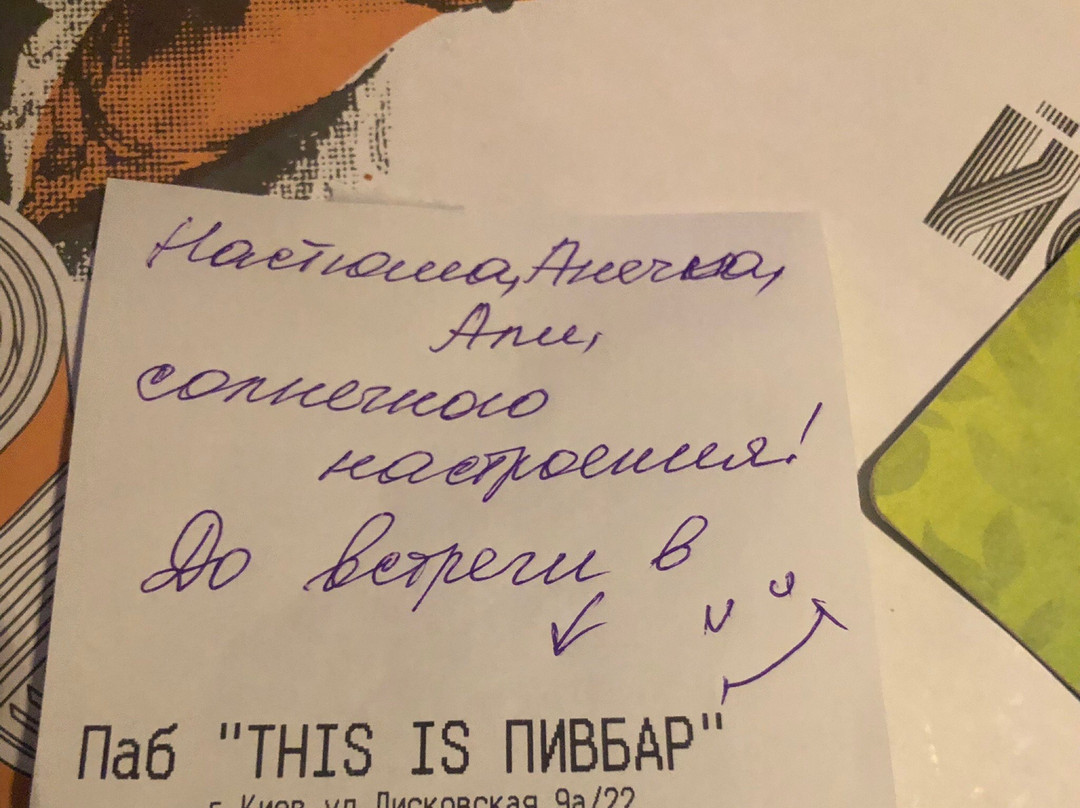 Настюша, Анечка,
Али,
солнечного
настроения!
До встречи в
Паб "THIS IS ПИВБАР"
г. Киев ул Лисковская 9а/22